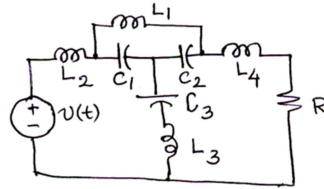 L1
L2
C1
C2
L4
+
-
v(t)
C3
R
L3